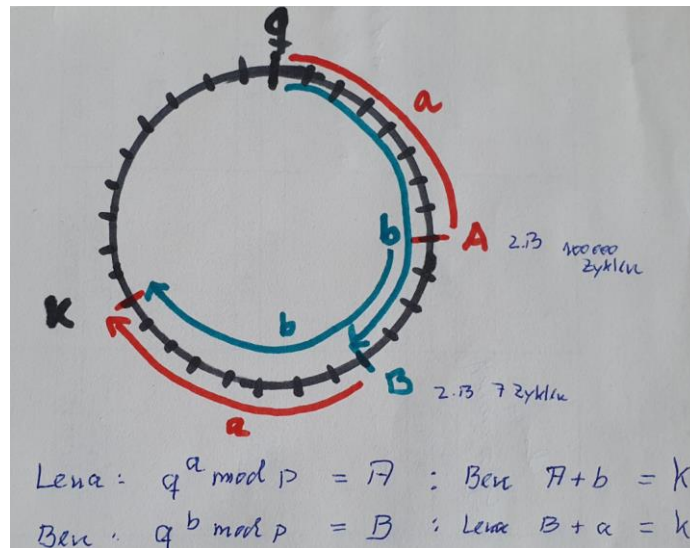 g
a
A z.B 100000
Zyklen
b
b
K
B z.B 7 Zyklen
a
Lena: g^a mod p = A : Ben A+b = K
Ben: g^b mod p = B : Lena B+a = k